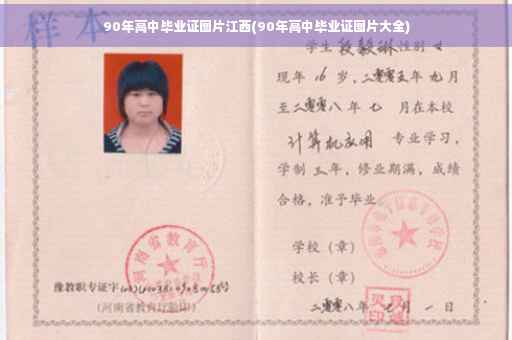 90年高中毕业证图片江西(90年高中毕业证图片大全)
样本
学生 段毅琳 性别 女
现年 16 岁,二零零五年 九月
至二零零八年 七 月在本校
计算机应用 专业学习,
学制 三 年,修业期满,成绩
合格,准予毕业
学校(章)
校长(章)
二零零八年 七 月 一 日
河南省教育厅
豫教职专证字
(河南省教育厅验印)